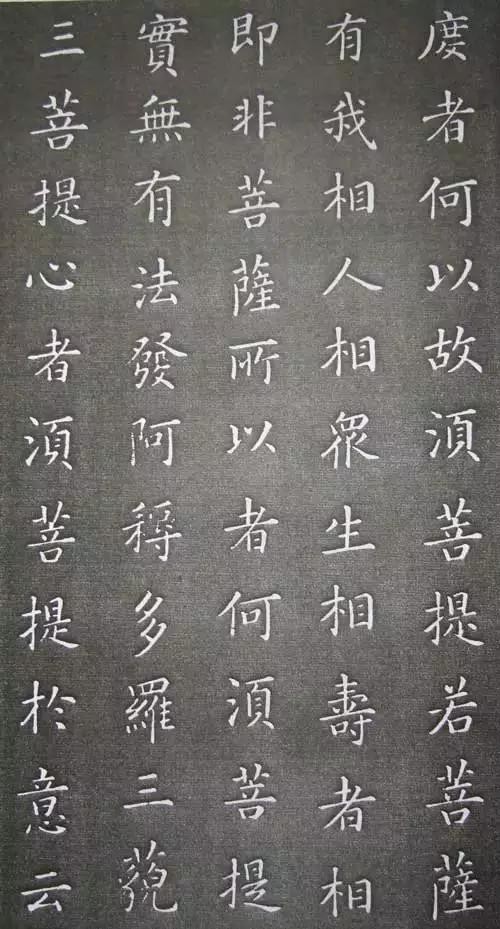 度者何以故須菩提若菩薩
有我相人相眾生相壽者相
即非菩薩所以者何須菩提
實無有法發阿耨多羅三藐
三菩提心者須菩提於意云